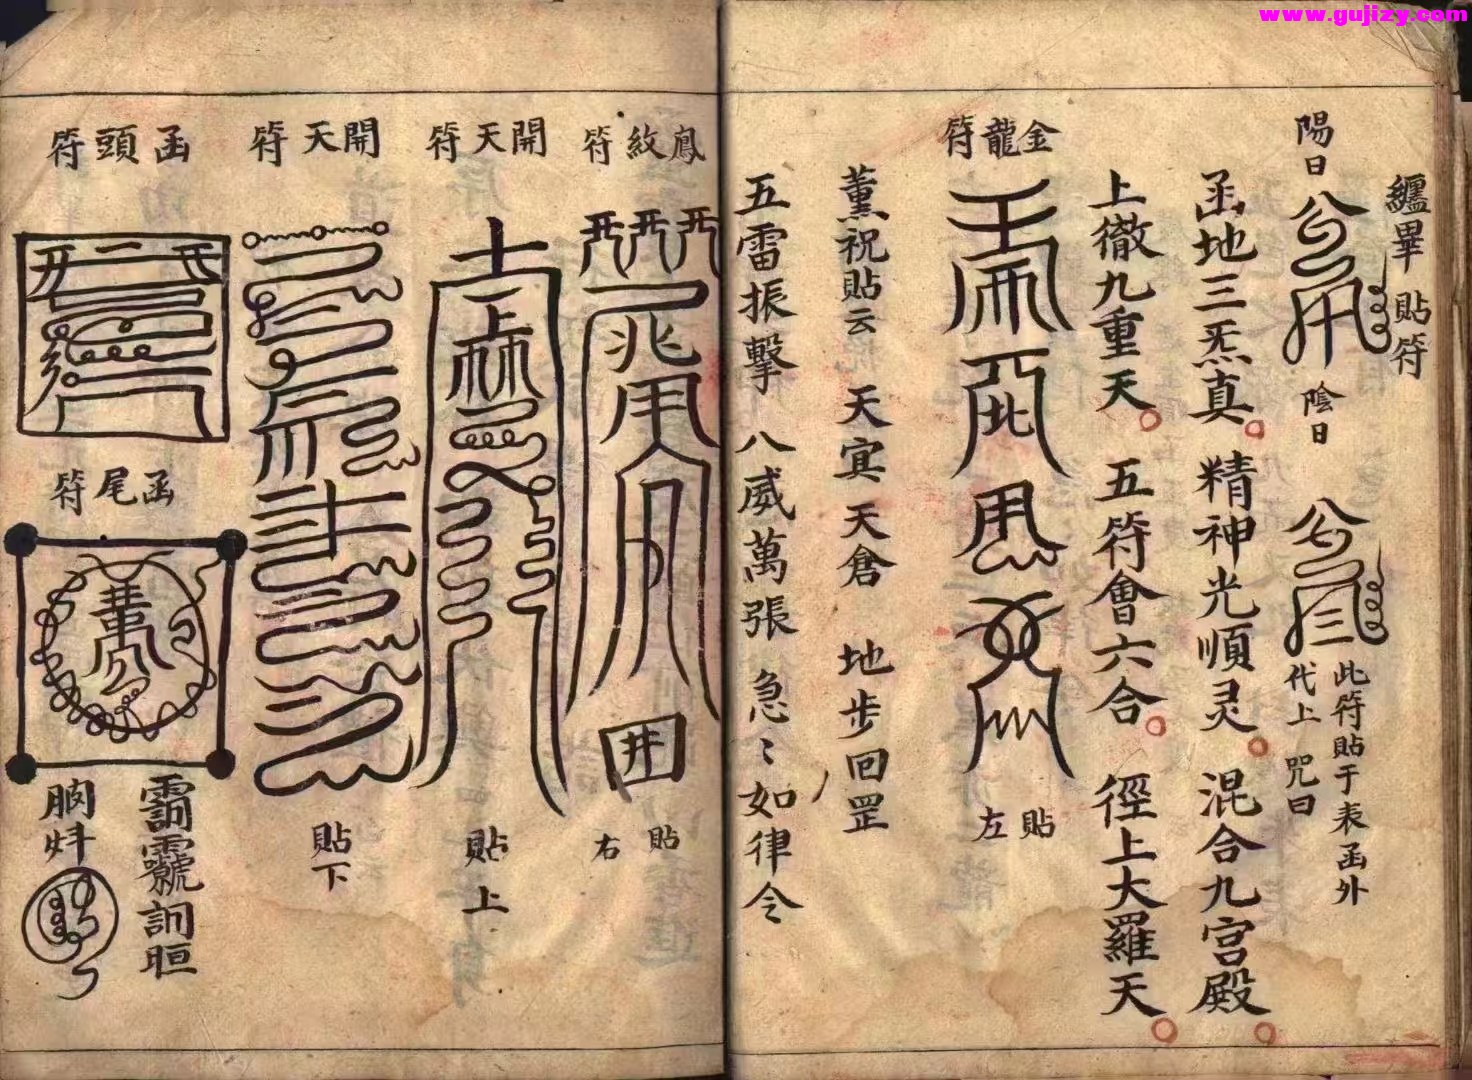 www.gujizy.com
纏畢 貼符
陽日
陰日
此符貼于表函外
代上 咒曰
函地三炁真 精神光順灵 混合九宫殿
上徹九重天 五符會六合 徑上大羅天
金龍符
貼左
薰祝貼云 天宜天倉 地步回罡
五雷振擊 八威萬張 急〻如律令
鳳紋符
貼右
開天符
貼上
開天符
貼下
函頭符
函尾符